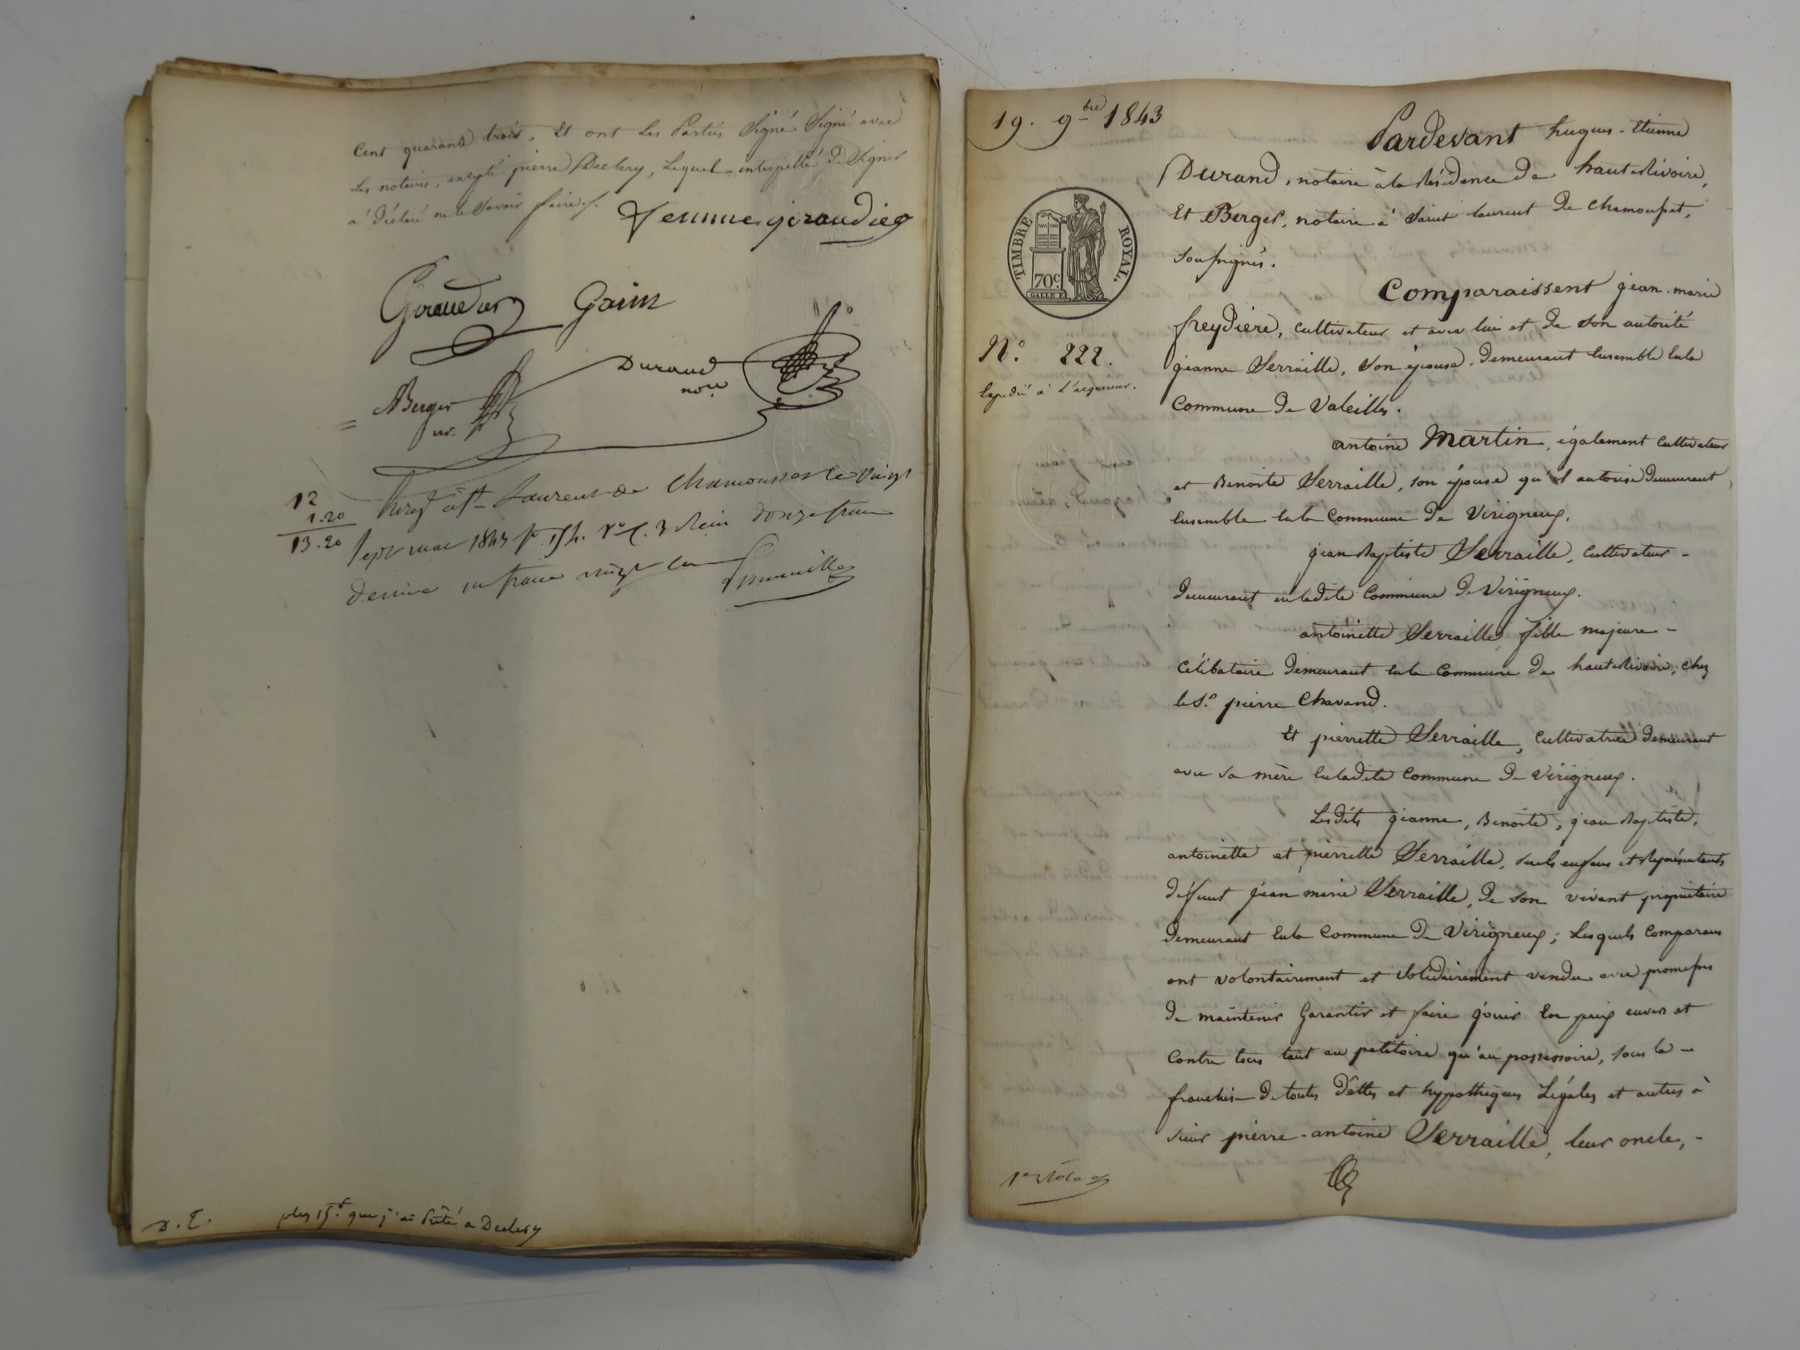 Cent quarante trois, Et ont Les Parties Signé Signé avec
Les notaires, excepté pierre Declery, Lequel interpellé de Signer
a déclaré ne le Savoir faire.
femme giraudier
Giraudier Gaim
Durand
nore
Berger
nre.
12
1.20
13.20
Enregé à St Laurent de Chamousset le vingt
sept mai 1843 fo 154. vo C. 3 Reçu douze francs
decime un franc vingt
D. E.
plus 15 f que j'ai Prêté a Declery
19. 9bre 1843
TIMBRE ROYAL.
70c
No. 222.
Expédié à l'acquereur.
Pardevant hugues-Etienne
Durand, notaire à la Résidence de haute Rivoire,
Et Berger, notaire à Saint laurent de Chamousset,
Soussignés.
Comparaissent jean-marie
freydière, cultivateur et avec lui et de son autorité
jeanne Serraille, son épouse, demeurant Ensemble En la
Commune de Valeille.
antoine Martin, également cultivateur
et Benoite Serraille, son épouse qu'il autorise Demeurant
Ensemble En la Commune de Virigneux.
jean Baptiste Serraille, cultivateur -
demeurant en ladite Commune de Virigneux.
antoinette Serraille, fille majeure -
célibataire demeurant En la Commune de haute Rivoire, chez
le Sr. pierre Chavand.
Et pierrette Serraille, cultivatrice demeurant
avec sa mère En ladite Commune de Virigneux.
Lesdits jeanne, Benoite, jean Baptiste,
antoinette et pierrette Serraille, seuls enfans et Représentants
défunt jean marie Serraille, de son vivant propriétaire
demeurant En la Commune de Virigneux; Lesquels Comparans
ont volontairement et Solidairement vendu avec promesses
de maintenir Garantir et faire jouir En paix envers et
Contre tous tant au petitoire qu'au possessoire, sous la -
franchise de toutes dettes et hypothèques Légales et autres à
sieur pierre-antoine Serraille, leur oncle, -
1er Rôle